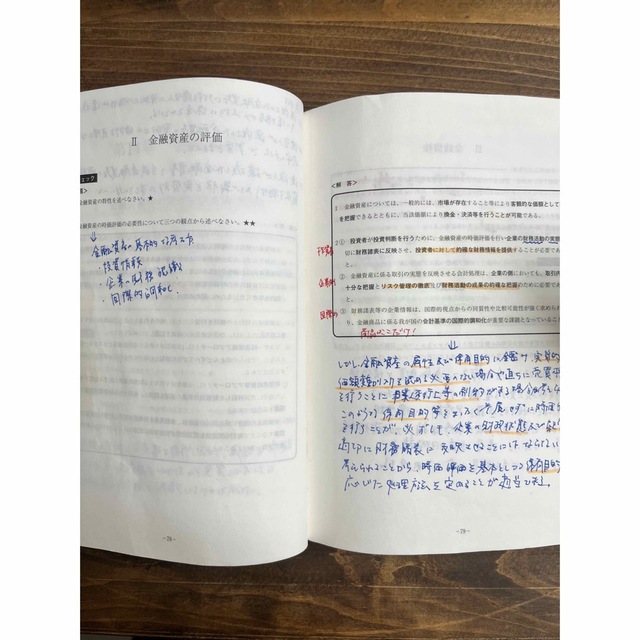 Ⅱ 金融資産の評価
ェック
答>
金融資産の特性を述べなさい。★
金融資産の時価評価の必要性について三つの観点から述べなさい。★★
↓
金融資産の基本的な考え方
・投資情報
・企業の財務認識
・国際的調和化
-78-
<解 答>
1 金融資産については、一般的には、市場が存在すること等により客観的な価額として
を把握できるとともに、当該価額により換金・決済等を行うことが可能である。
2 ① 投資者が投資判断を行うために、金融資産の時価評価を行い企業の財務活動の実態
切に財務諸表に反映させ、投資者に対して的確な財務情報を提供することが必要である。
② 金融資産に係る取引の実態を反映させる会計処理は、企業の側においても、取引内
十分な把握とリスク管理の徹底及び財務活動の成果の的確な把握のために必要である
③ 財務諸表等の企業情報は、国際的視点からの同質性や比較可能性が強く求められ
り、金融商品に係る我が国の会計基準の国際的調和化が重要な課題となっていること
投資者
企業側
国際的
↓
しかし、金融資産の属性及び保有目的に鑑み、実質的
価額
を認める必要のない場合や直ちに売買
を行うことに事業遂行上等の制約がある場合が考え
このような保有目的等をまったく考慮せずに時価評
を行うことが、必ずしも、企業の財政状態及び経
適切に財務諸表に反映させることにはならないと
考えられることから、時価評価を基本としつつ保有目的
応じた処理方法を定めることが適当である。
-79-